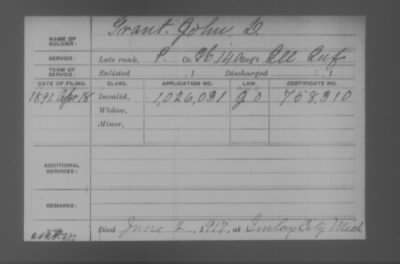 NAME OF SOLDIER: Grant, John D.
SERVICE: Late rank, P. Co. H 14 Reg't Ill Inf
TERM OF SERVICE: Enlisted , 1 Discharged , 1
DATE OF FILING. CLASS. APPLICATION NO. LAW. CERTIFICATE NO.
1891 Apr 18 Invalid, 1,026,031 G O 758,310
Widow,
Minor,
ADDITIONAL SERVICES:
REMARKS:
Died June 2, 1917, at Imlay City Mich